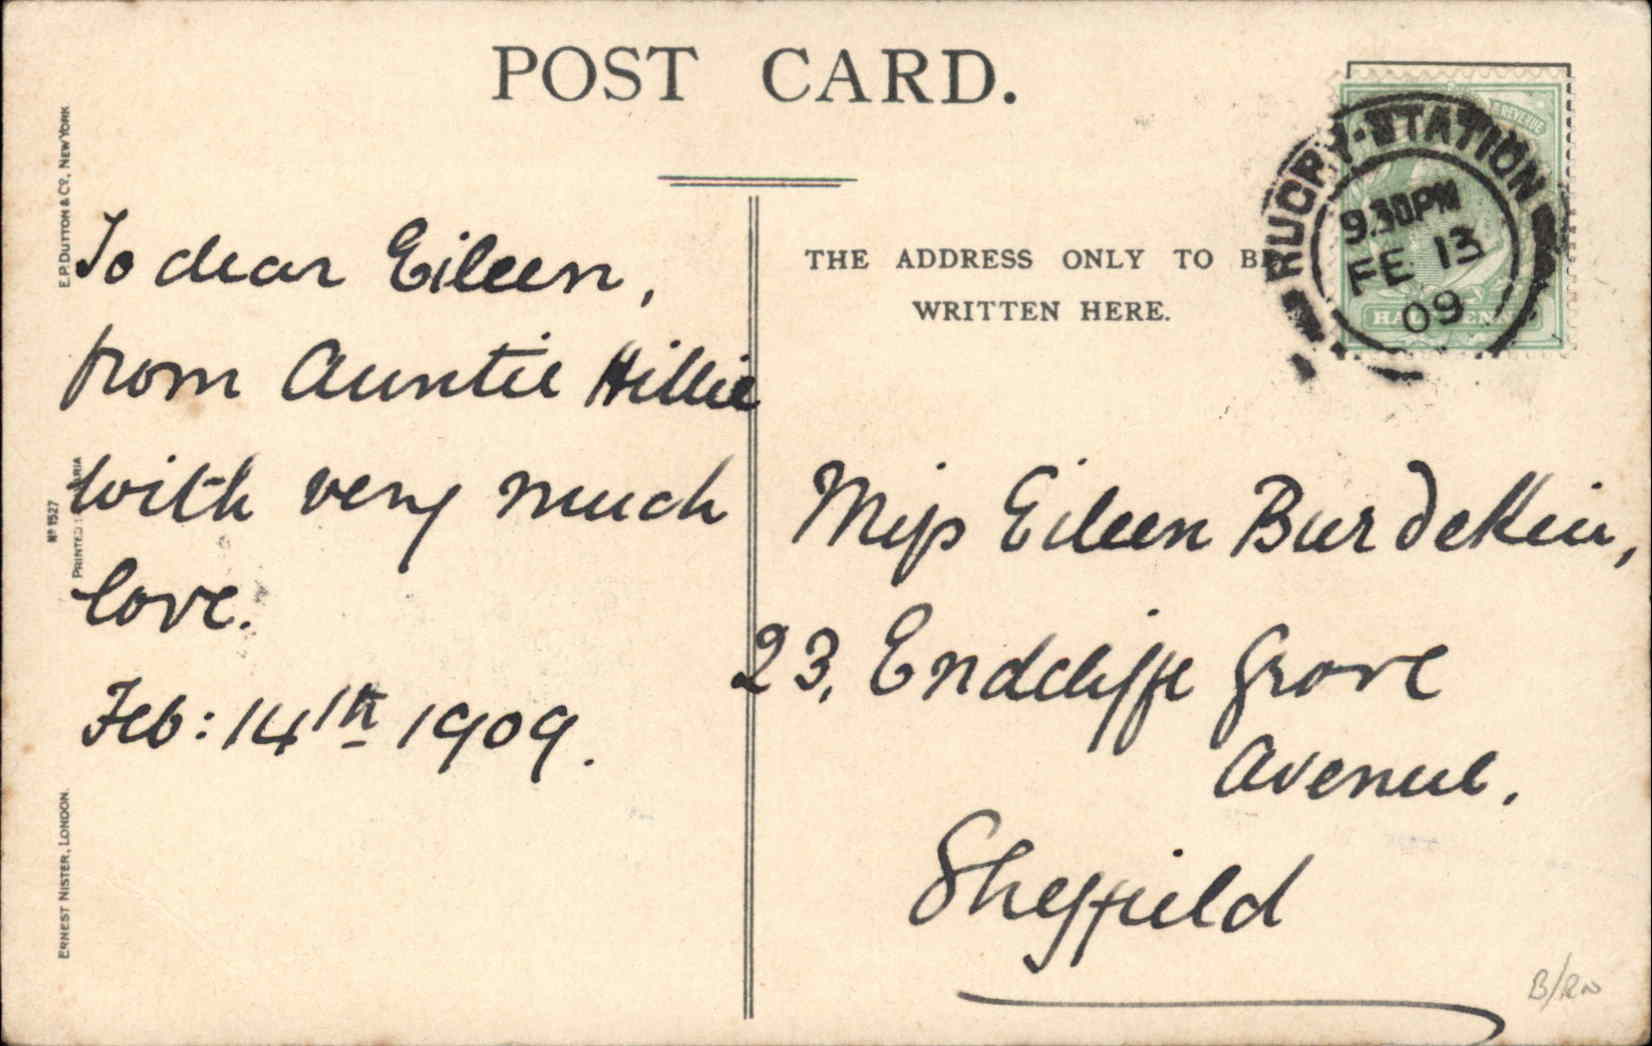 POST CARD.
E.P. DUTTON & Co., NEW YORK
Nº 1527
PRINTED
ERNEST NISTER, LONDON.
To dear Eileen,
from Auntie Hillie
with very much
love.
Feb: 14th 1909.
THE ADDRESS ONLY TO BE
WRITTEN HERE.
RUGBY-STATION
9.30PM
FE 13
09
REVENUE
HALFPENNY
Miss Eileen Burdekin,
23, Endcliffe Grove
Avenue,
Sheffield